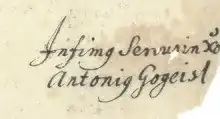 Infimg Servus in Xo
Antonig Gogeisl